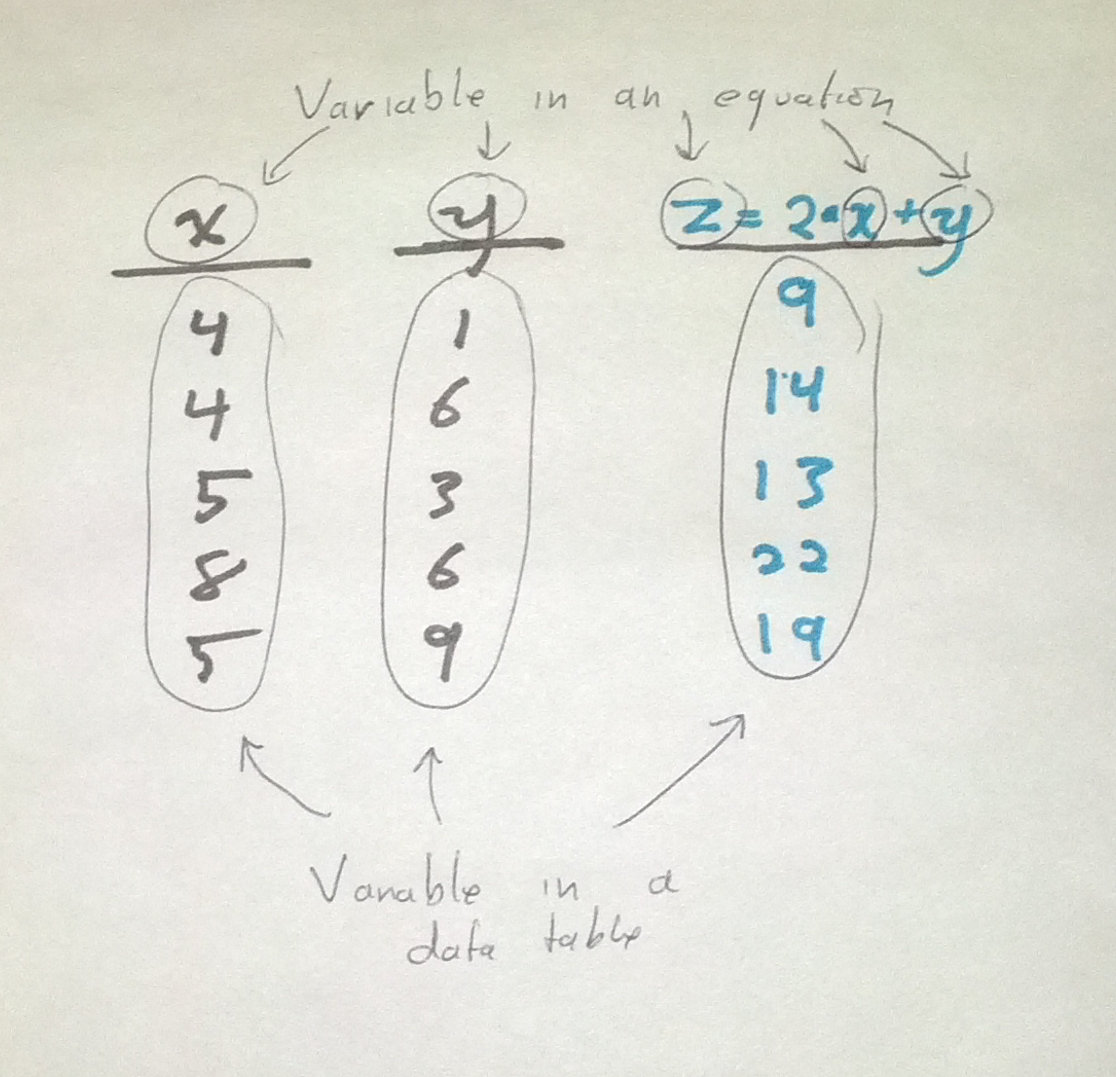 Variable in an equation
x y z = 2•x+y
4 1 9
4 6 14
5 3 13
8 6 22
5 9 19
Variable in a
data table